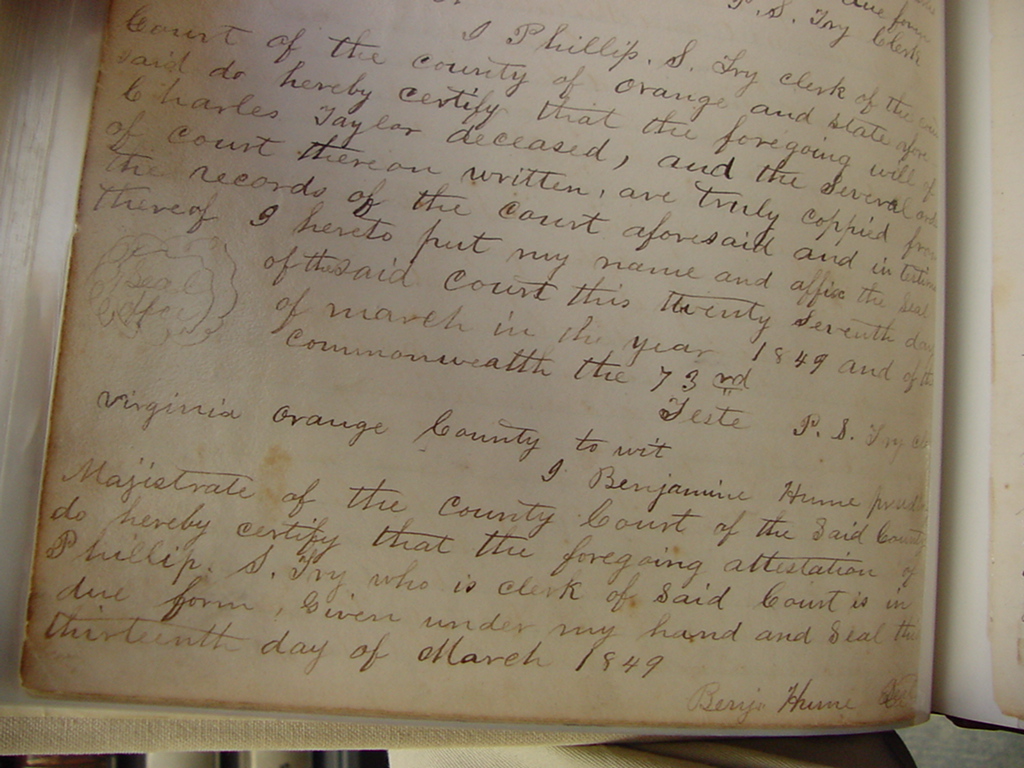 due form
P. S. Fry Clerk
I Phillip. S. Fry clerk of the
Court of the county of Orange and state afore
said do hereby certify that the foregoing will of
Charles Taylor deceased, and the several
of court thereon written, are truly coppied from
the records of the court aforesaid and in
thereof I hereto put my name and affix the Seal
of the said Court this twenty Seventh day
of march in the year 1849 and of the
commonwealth the 73 rd
Seal
Office
Teste P. S. Fry
virginia Orange County to wit
I Benjamine Hume
Majistrate of the County Court of the Said County
do hereby certify that the foregoing attestation of
Phillip. S. Fry who is clerk of Said Court is in
due form, Given under my hand and Seal this
thirteenth day of March 1849
Benja Hume Seal